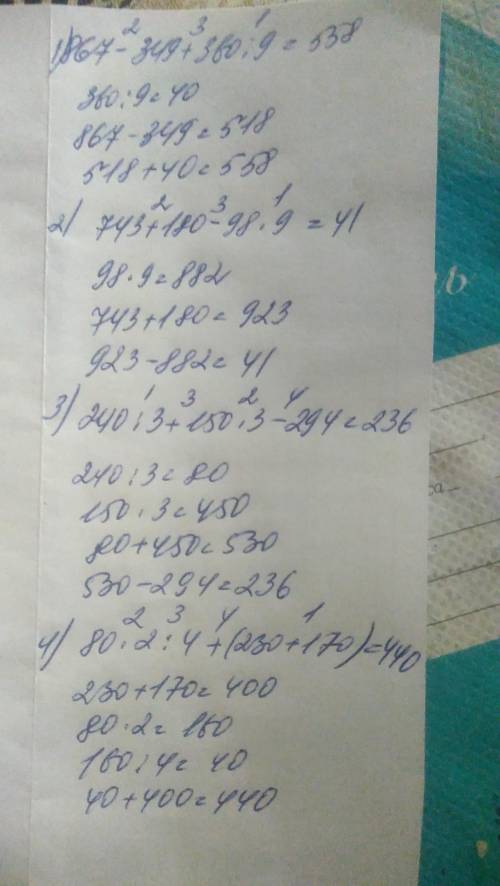 2 3 1
1) 867-349+360:9=538
360:9=40
867-349=518
518+40=558
2 3 1
2) 743+180-98·9=41
98·9=882
743+180=923
923-882=41
1 3 2 4
3) 240:3+150·3-294=236
240:3=80
150:3=450
80+450=530
530-294=236
2 3 4 1
4) 80·2:4+(230+170)=440
230+170=400
80·2=160
160:4=40
40+400=440